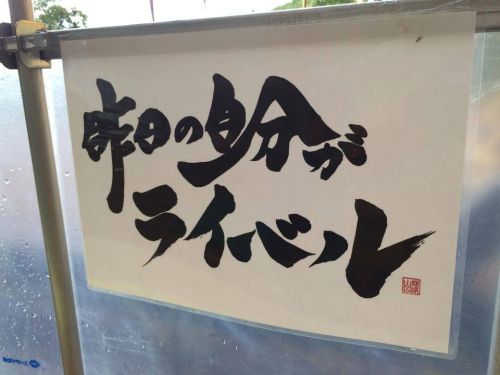 昨日の自分が
ライバル